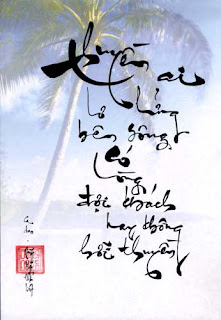 thuyền ai
lơ lửng
bên sông
có lòng
đợi khách
hay không
hỡi thuyền
ca dao